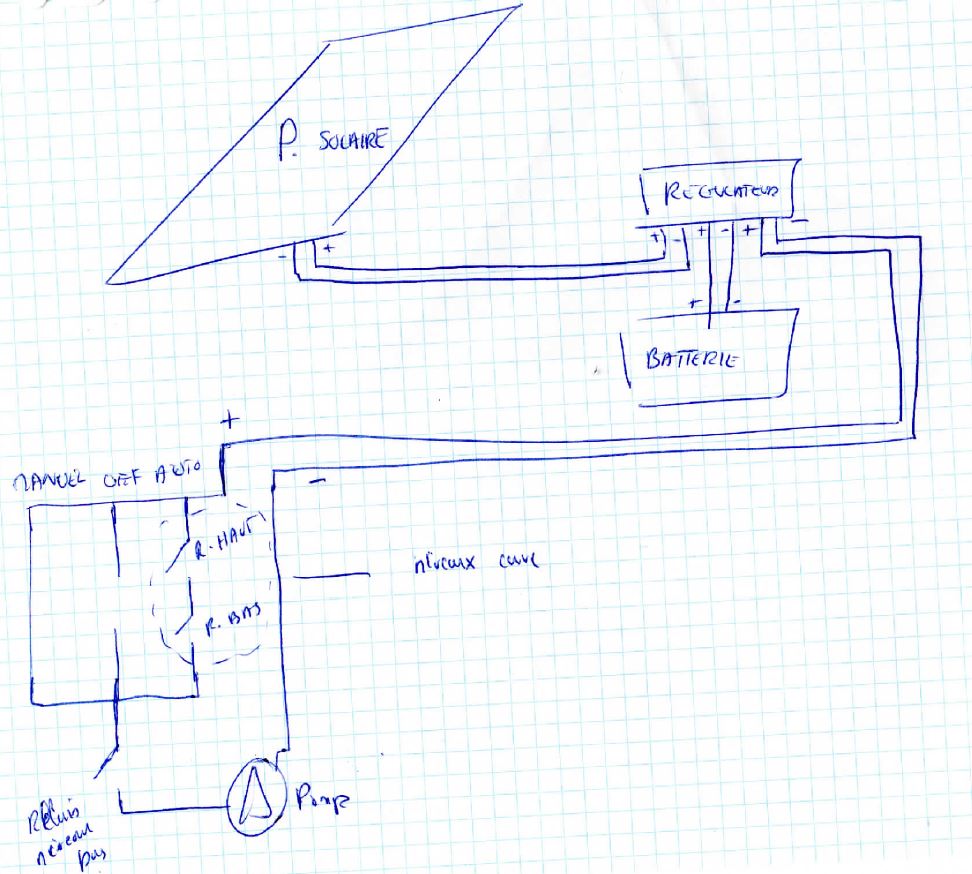 P. SOLAIRE
REGULATEUR
- +
+ - + - + -
+ -
BATTERIE
+
MANUEL OFF AUTO
-
R. HAUT
R. BAS
niveaux cuve
Pompe
niveau
bas